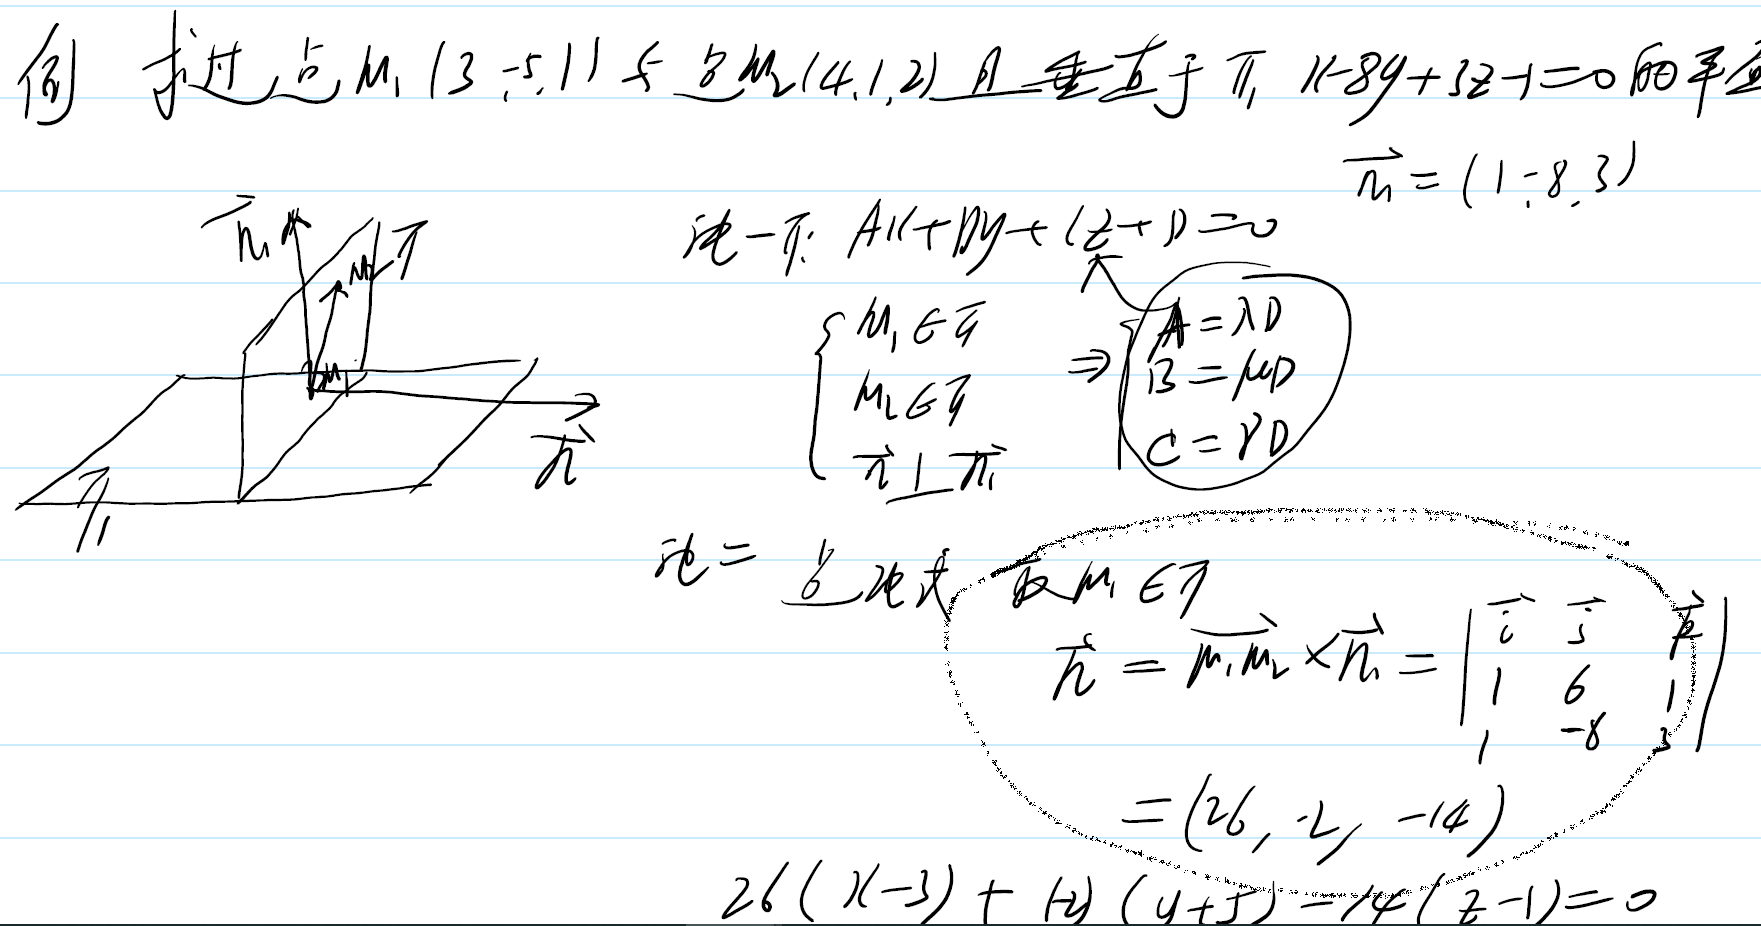 例 求过点M₁(3,-5,1)与点M₂(4,1,2)且垂直于π₁ x-8y+3z-1=0的平面
n⃗₁=(1,-8,3)
n⃗₁ M₂ π
M₁
n⃗
π₁
法一 π: Ax+By+Cz+D=0
{ M₁∈π
M₂∈π
n⃗⊥n⃗₁
⇒ { A=λD
B=μD
C=γD
法二 点法式 取M₁∈π
n⃗ = M₁M₂⃗ × n⃗₁ = | i⃗ j⃗ k⃗ |
1 6 1
1 -8 3
=(26, -2, -14)
26(x-3)+(-2)(y+5)-14(z-1)=0